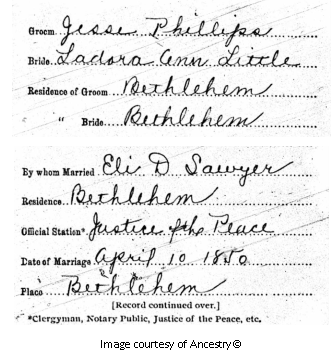 Groom, Jesse Phillips
Bride, Ladora Ann Little
Residence of Groom, Bethlehem
" Bride, Bethlehem
By whom Married, Eli D Sawyer
Residence, Bethlehem
Official Station* Justice of the Peace
Date of Marriage, April 10 1850
Place Bethlehem
[Record continued over.]
*Clergyman, Notary Public, Justice of the Peace, etc.
Image courtesy of Ancestry©